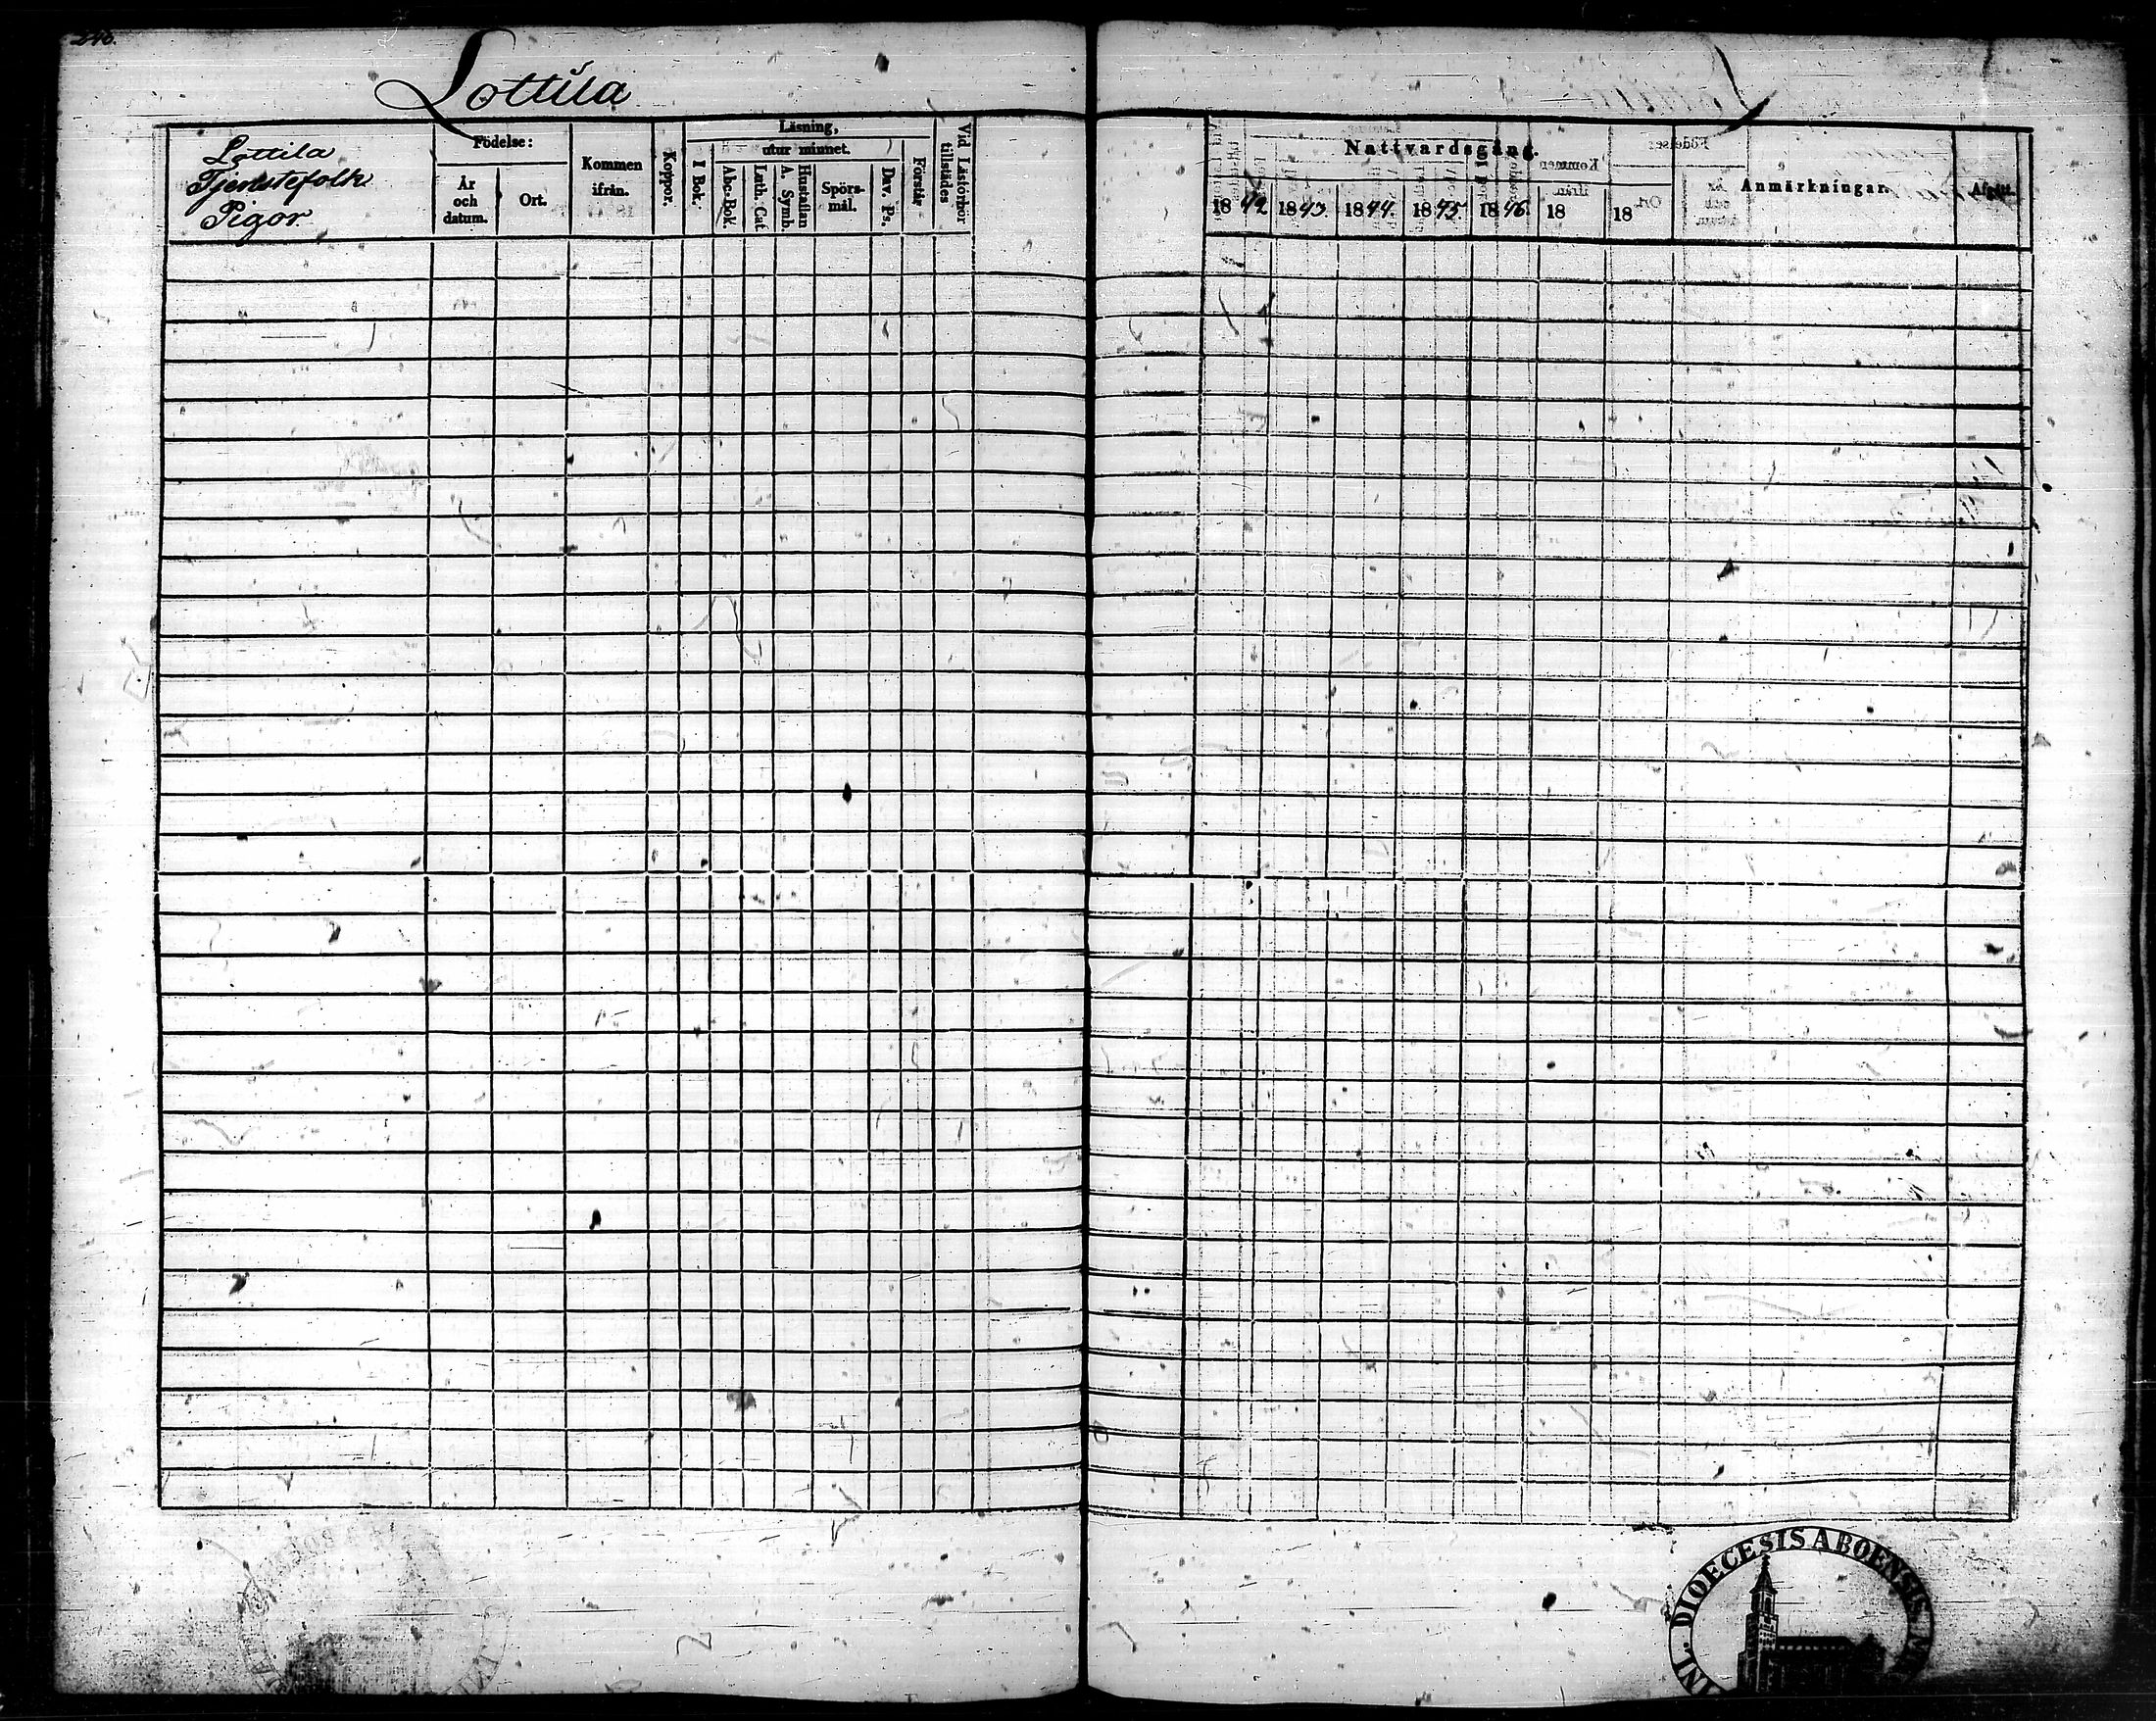 240.
Lottila
Lottila
Tjenstefolk
Pigor.
Födelse:
År
och
datum.
Ort.
Kommen
ifrån.
Koppor.
Läsning,
utur minnet.
I Bok.
Abc-Bok.
Luth. Cat
A. Symb.
Hustaflan
Spörs-
mål.
Dav. Ps.
Förstår
Vid Läsförhör
tillstädes
Nattvardsgång.
1842
1843.
1844.
1845.
1846.
18
18
Anmärkningar.
Afgått.
DIOECESIS ABOENSIS